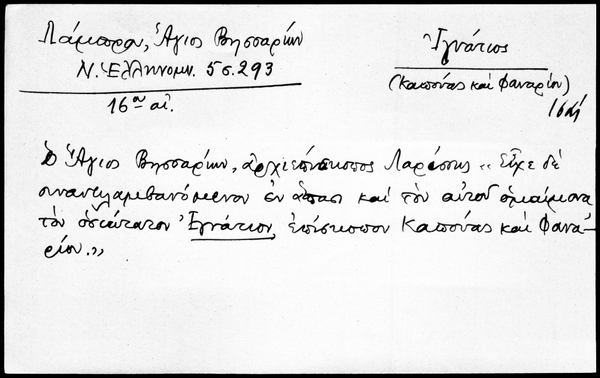 Λάμπρου, Ἅγιος Βησσαρίων
Ν. Ἑλληνομν. 5 σ. 293
16ου αἰ.
Ἰγνάτιος
(Καπούας καὶ Φαναρίου)
Ὁ Ἅγιος Βησσαρίων, ἀρχιεπίσκοπος Λαρίσσης „ Εἶχε δὲ
συναντιλαμβανόμενον ἐν ἅπασι καὶ τὸν αὐτοῦ ὁμαίμονα
τὸν ὁσιώτατον Ἰγνάτιον, ἐπίσκοπον Καπούας καὶ Φανα-
ρίου."